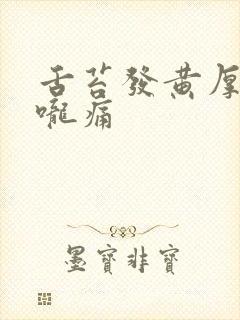 舌苔發黄厚
嚨痛
墨寶非寶